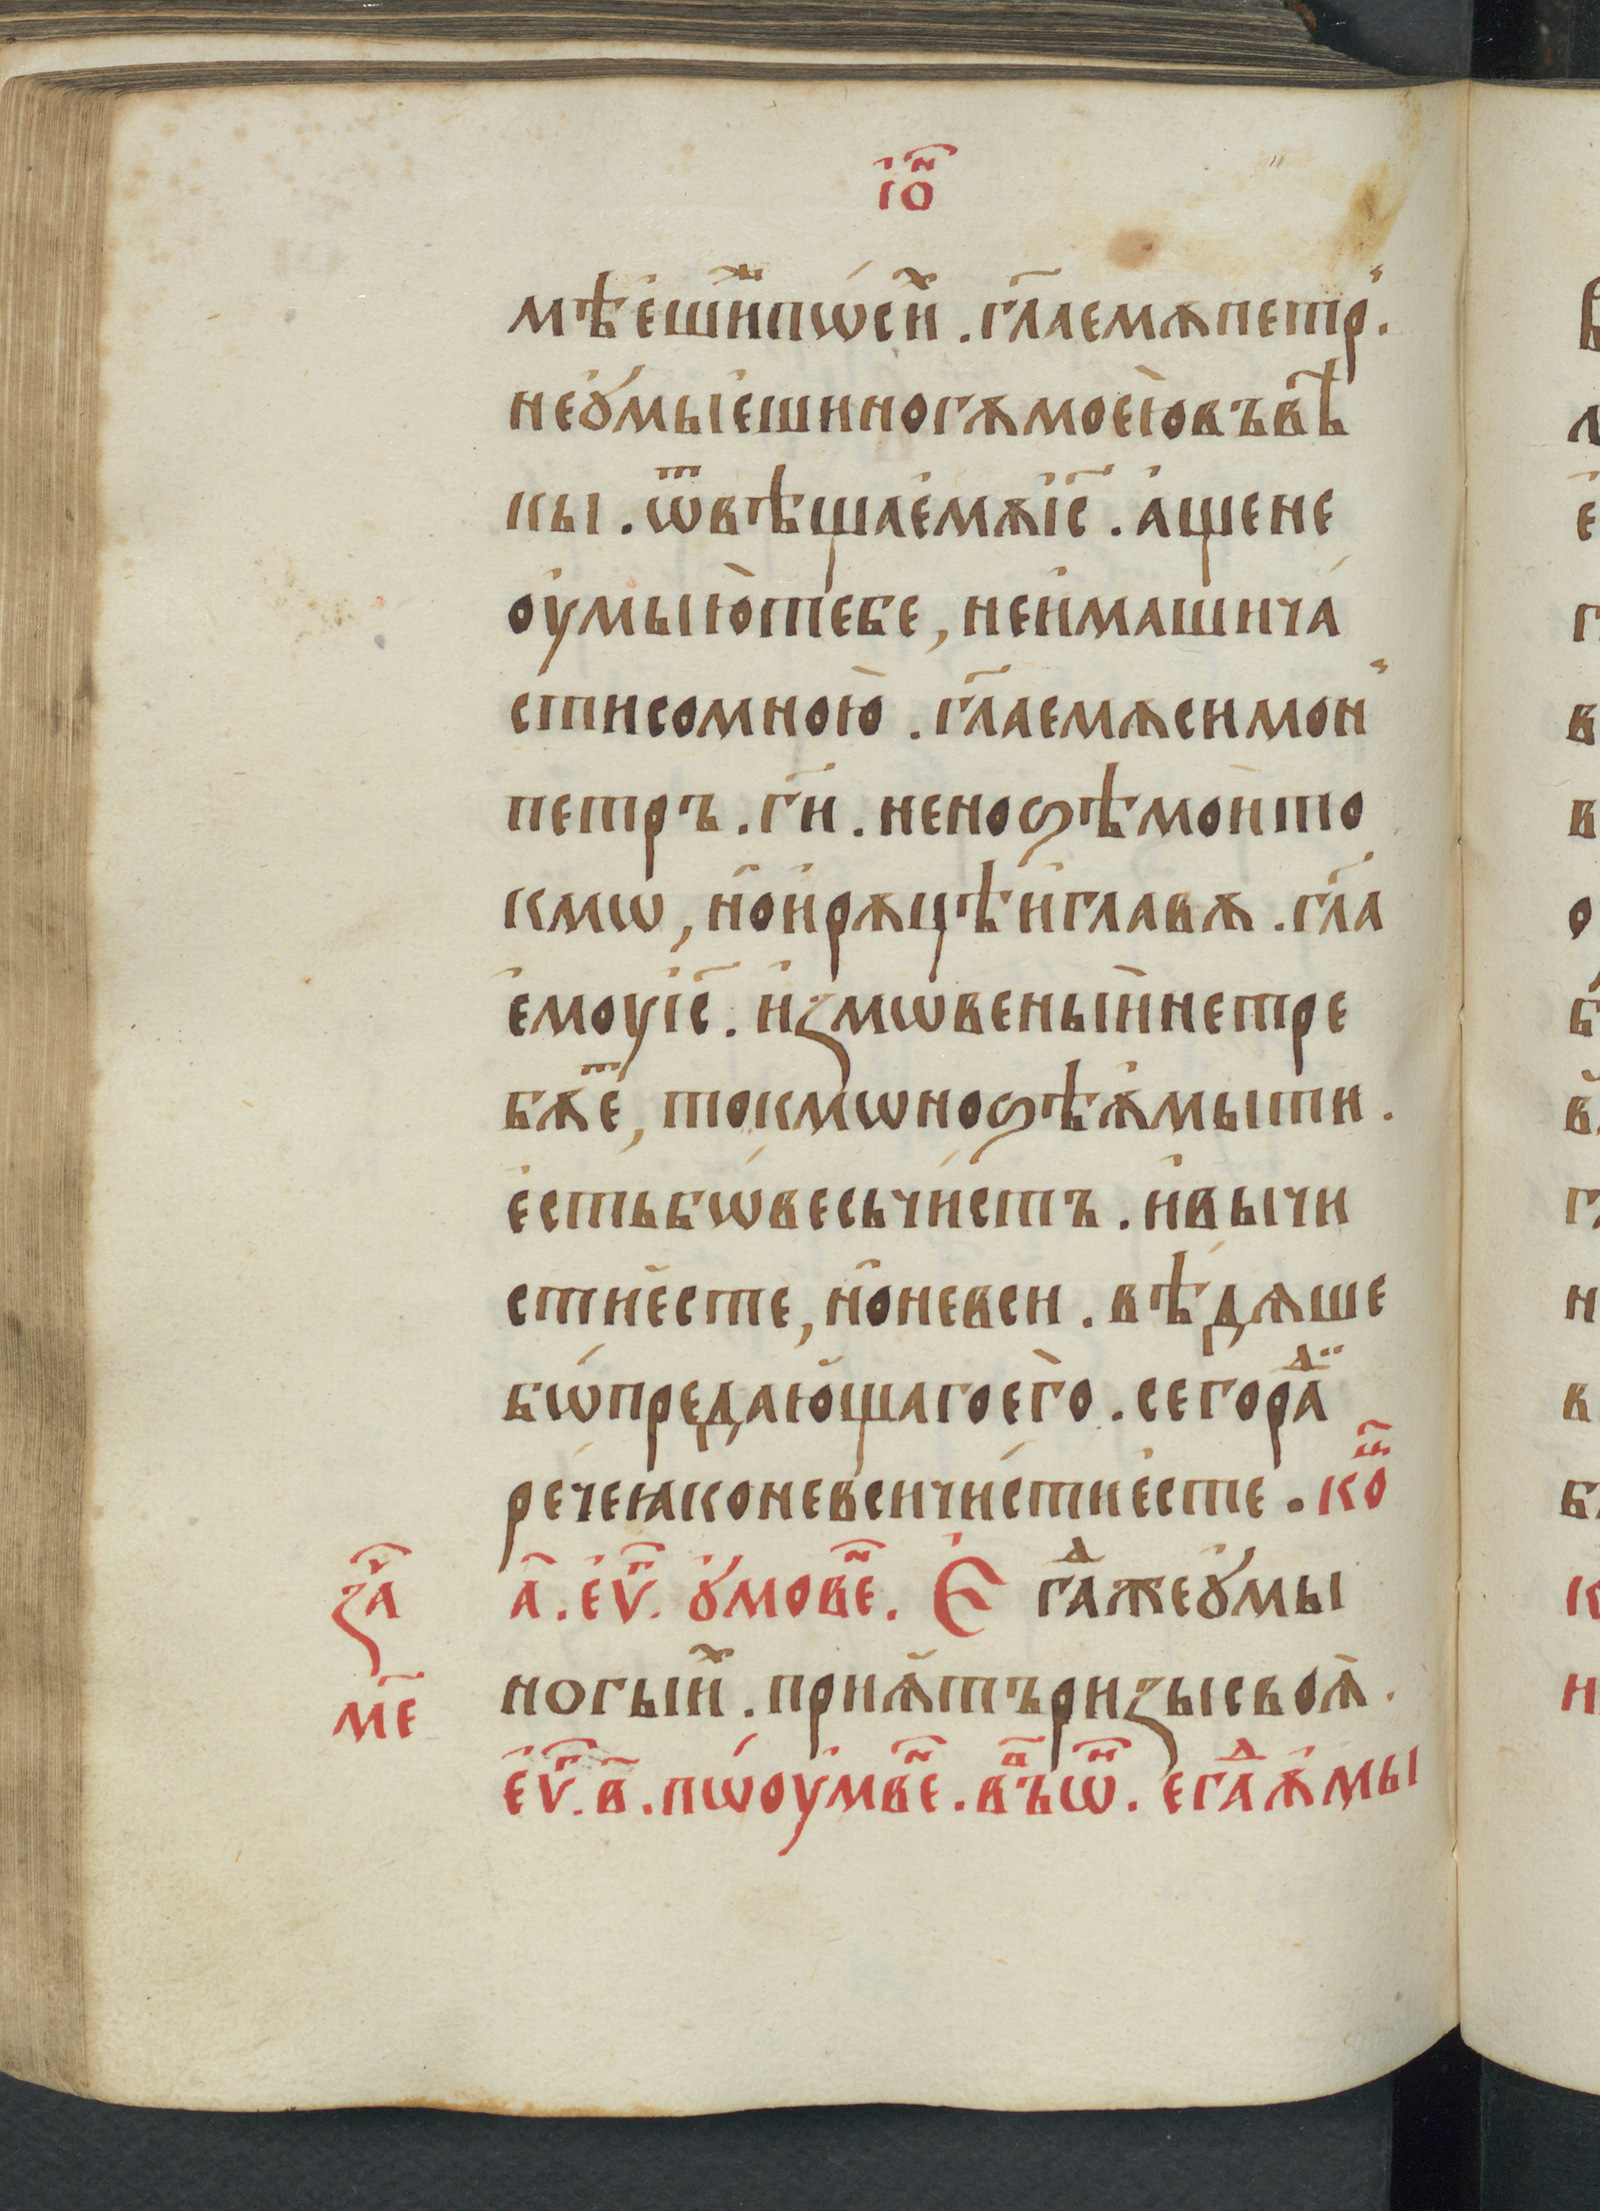 іо҃н
мѣе҆ши́ж҃епѡ́си́х҃ . гл҃аемѫпетр̾ .
неꙋ҆мыеши ногѫмоеѐювъвѣ̑
кы . ѿвѣщае҆мѫі҆с҃ . а҆щене
оу҆мыю̀тебе , неи҆машича́
стисомно́ю . гл҃аемѫсимон̾
петръ . гн҃ . неноѕѣмоѝто
кмѡ , но̑и҆рѫцѣи҆главѫ . гл҃а
е҆моуі҆с҃ . и҆змѡвеныѝнетре
бѫ́е҆ⷮ , токмѡноѕѣѫ҆мыти .
е҆стьбѡ́весьчи́стъ . и҆вычи
стие҆сте , но̑невси . вѣ́дѧше
бѡ́предаю́щагоего̀ . сегораⷣ
речеꙗконевсичи́стие҆сте . коⷩ҇
за҃ч а҃ . е҆ѵⷢ҇ . ꙋ҆мовеⷩ҇ . Е҆гдⷶ҇жеꙋ҆мы
мє҃ ногыи́хⷯ . прию҆ѧ́търизысвоѧ҆ .
е҆ѵⷢ҇ . в҃ . пѡ́оу҆мвеⷩ҇ . въѡⷩ҇ . егаⷣѫ҆мы